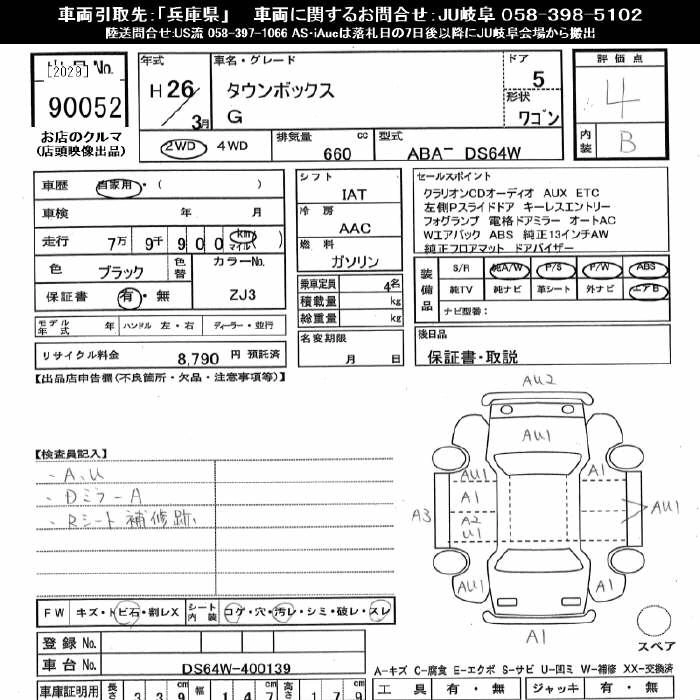 車両引取先:「兵庫県」　車両に関するお問合せ:JU岐阜 058-398-5102
陸送問合せ:US流 058-397-1066 AS-iAucは落札日の7日後以降にJU岐阜会場から搬出
[2029] No.
90052
お店のクルマ
(店頭映像出品)
年式 H26 3月
車名・グレード
タウンボックス
G
ドア 5
形状 ワゴン
評価点 4
内装 B
2WD 4WD
排気量 cc 660
型式 ABA- DS64W
車歴 自家用・( )
車検 年 月
走行 7万 9千 900 km マイル ( )
色 ブラック 色替
カラーNo. ZJ3
保証書 有・無
モデル年式 年 ハンドル 左・右 ディーラー・並行
リサイクル料金 8,790 円 預託済
シフト IAT
冷房 AAC
燃料 ガソリン
乗車定員 4名
積載量 kg
総重量 kg
名変期限 月 日
セールスポイント
クラリオンCDオーディオ AUX ETC
左側Pスライドドア キーレスエントリー
フォグランプ 電格ドアミラー オートAC
Wエアバック ABS 純正13インチAW
純正フロアマット ドアバイザー
装備品
S/R 純A/W P/S P/W ABS
純TV 純ナビ 革シート 外ナビ エアB
ナビ型番:
後日品
保証書・取説
【出品店申告欄(不良箇所・欠品・注意事項等)】
【検査員記入】
・A、U
・DミラーA
・Rシート補修跡
AU2
AU1
AU1
A1
A1
A3
A2
UU1
AU1
AU1
A1
A1
スペア
FW キズ・トビ石・割レX シート内装 コゲ・穴・汚レ・シミ・破レ・スレ
登録 No.
車台 No. DS64W-400139
A-キズ C-腐食 E-エクボ S-サビ U-凹ミ W-補修 XX-交換済
車庫証明用 長さ 3 3 9 cm 幅 1 4 7 cm 高さ 1 7 9 cm
工具 有・無 ジャッキ 有・無